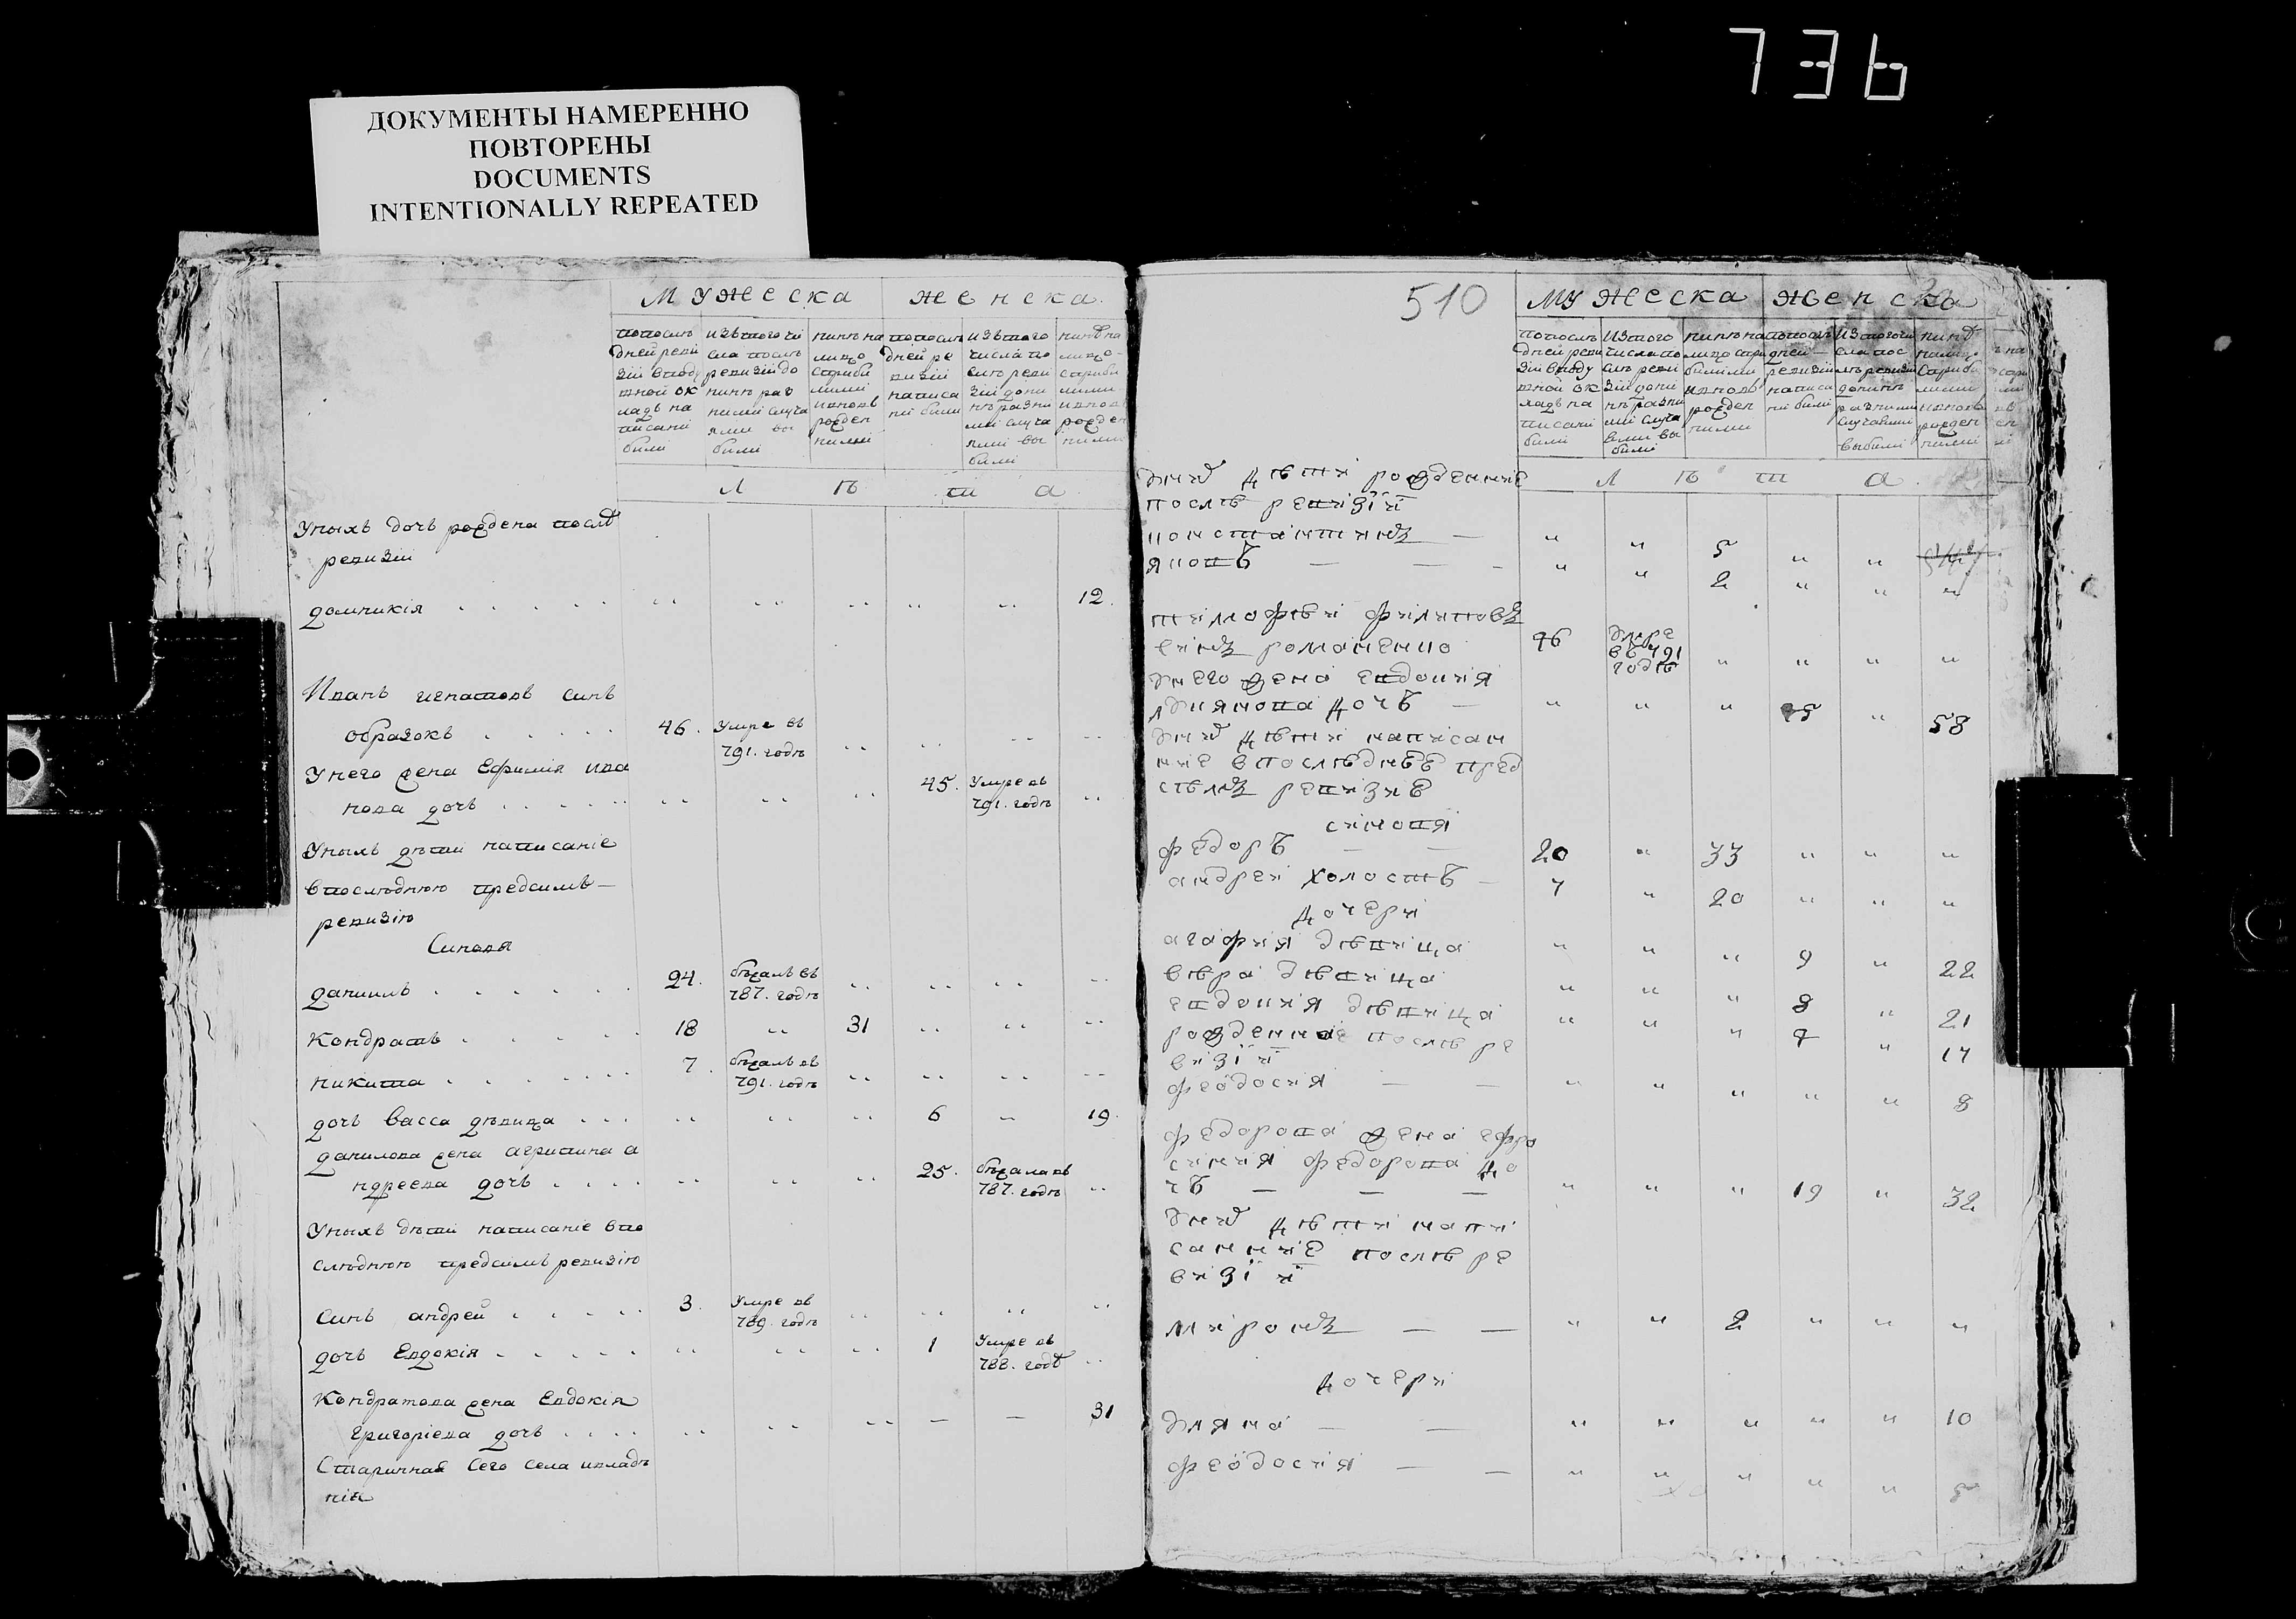 736
ДОКУМЕНТЫ НАМЕРЕННО
ПОВТОРЕНЫ
DOCUMENTS
INTENTIONALLY REPEATED
Мужеска женска
попослѣ
дней реви
зіи вподу
шной ок
ладъ на
писани
били
изътого чи
сла послѣ
ревизіи до
нинѣ раз
ними случа
ями вы
били
нинѣ на
лицо
съприби
лими
ивновь
рожден
ними
попослѣ
дней ре
визіи
написа
ни били
изътого
числа по
слѣ реви
зіи дони
нѣ разни
ми случа
ями вы
били
нинѣ на
лицо
съприби
лими
ивновь
рожден
ними
Л ѣ т а
Унихъ дочь рождена послѣ
ревизіи
домникія 12
Иванъ игнатовъ синъ
образокъ 46. Умре въ
791. годѣ
Унего жена Ефимія ива
нова дочь 45. Умре въ
791. годѣ
Унихъ дѣти написаніе
впослѣднюю предсимъ
ревизію
Синовя
даниилъ 24. бѣжалъ въ
787. годѣ
Кондратъ 18 31
никита 7. бѣжалъ въ
791. годѣ
дочь васса дѣвица 6 19
данилова жена агрипина а
ндреева дочь 25. бѣжала въ
787. годѣ
Унихъ дѣти написаніе впо
слѣднюю предсимъ ревизію
Синъ андрей 3. Умре въ
789. годѣ
дочь Евдокія 1 Умре въ
788. годѣ
Кондратова жена Евдокія
григоріева дочь 31
Старичная Сего Села ивладѣ
нія
510
Мужеска женска
попослѣ
дней реви
зіи вподу
шной ок
ладъ на
писани
били
Изтого
числа по
слѣ реви
зіи дони
нѣ разни
ми случа
ями вы
били
нинѣ на
лицо спри
билими
ивновь
рожден
ними
попослѣ
дней
ревизіи
написа
ни били
Изтогочи
сла пос
лѣ ревизіи
донинѣ
разними
случаями
выбили
нинѣ
налицо
съприби
лими
ивновь
рожден
ними
Л ѣ т а
унихъ дѣти рожденние
послѣ ревізіи
константинъ 5
яковъ 2
тимофѣй филиповъ
синъ романенко 46 умре
въ 791
годѣ
унего жена евдокия
лукянова дочь 45 58
унихъ дѣти написан
ние впослѣднѣѣ пред
сѣмъ ревизие
синовя
федоръ 20 33
андрей холостъ 7 20
дочери
агафия дѣвица 9 22
вѣра дѣвица 8 21
евдокия дѣвица 4 17
рожденная послѣ ре
визіи
феодосия 8
федорова жена ефро
синия федорова до
чъ 19 32
унихъ дѣти напи
санние послѣ ре
визіи
миронъ 2
дочери
уляна 10
феодосия 5